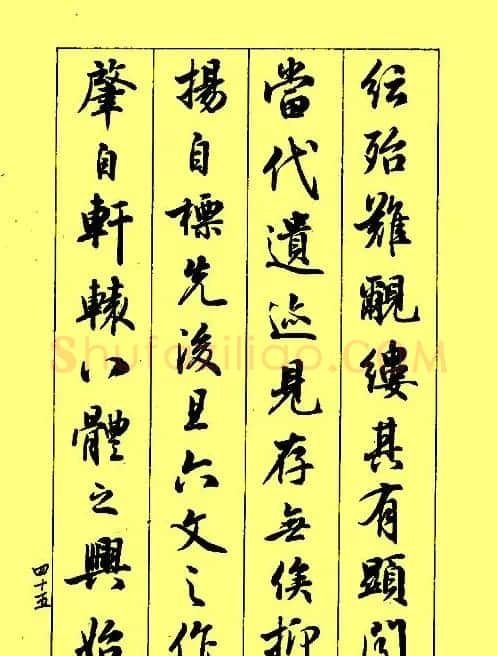 紜殆難覼縷其有顯聞
當代遺迹見存無俟抑
揚自標先後且六文之作
肇自軒轅八體之興始
四十五
Shufaziliao.COM